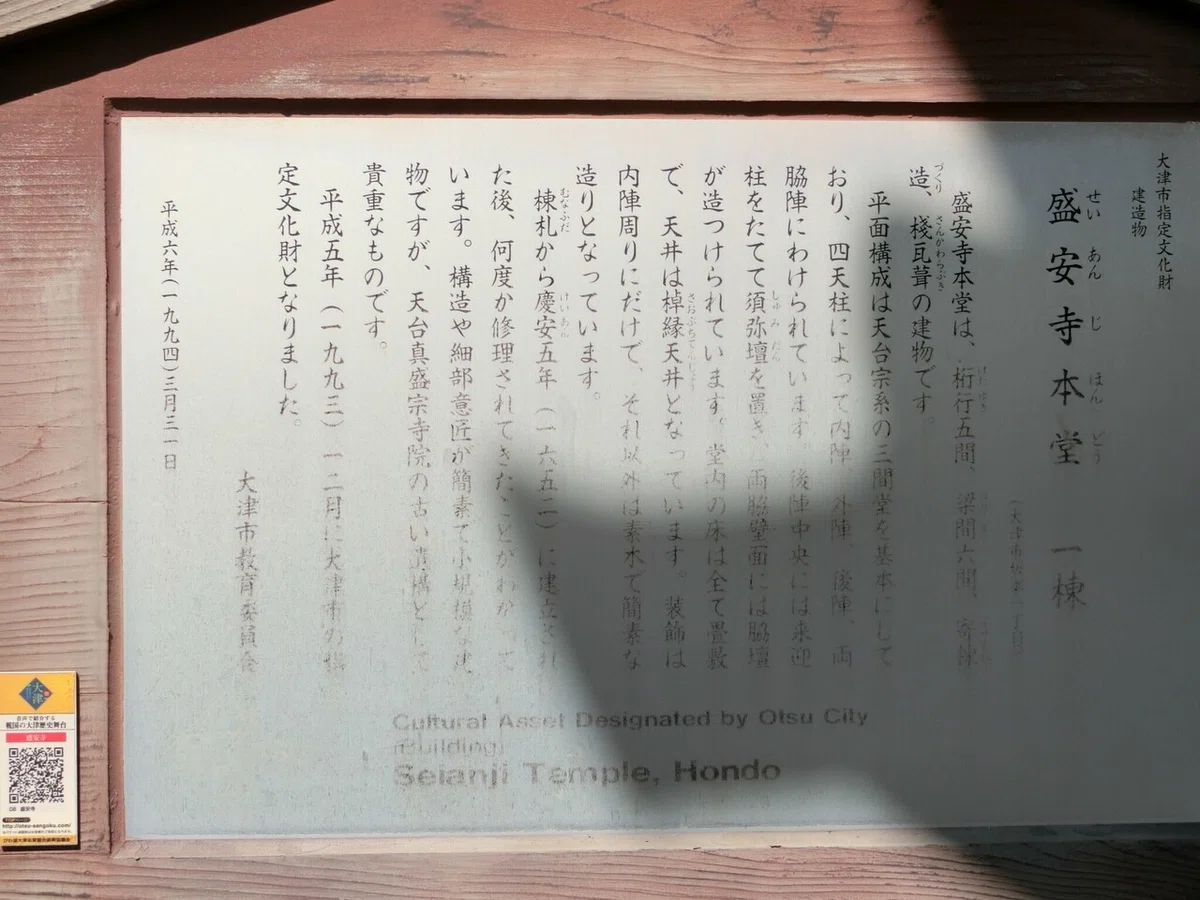 大津市指定文化財
建造物
盛安寺本堂 一棟
せい あん じ ほん どう
(大津市坂本一丁目)
盛安寺本堂は、桁行五間、梁間六間、寄棟
造、棧瓦葺の建物です。
平面構成は天台宗系の三間堂を基本にして
おり、四天柱によって内陣、外陣、後陣、両
脇陣にわけられています。後陣中央には来迎
柱をたてて須弥壇を置き、両脇壁面には脇壇
が造つけられています。堂内の床は全て畳敷
で、天井は棹縁天井となっています。装飾は
内陣周りにだけで、それ以外は素木で簡素な
造りとなっています。
棟札から慶安五年(一六五二)に建立され
た後、何度か修理されてきたことがわかって
います。構造や細部意匠が簡素で小規模な建
物ですが、天台真盛宗寺院の古い遺構として
貴重なものです。
平成五年(一九九三)一二月に大津市の指
定文化財となりました。
大津市教育委員会
平成六年(一九九四)三月三一日
Cultural Asset Designated by Otsu City
(Building)
Seianji Temple, Hondo
大津
音声で紹介する
戦国の大津歴史舞台
盛安寺
08 盛安寺
http://otsu-sengoku.com/